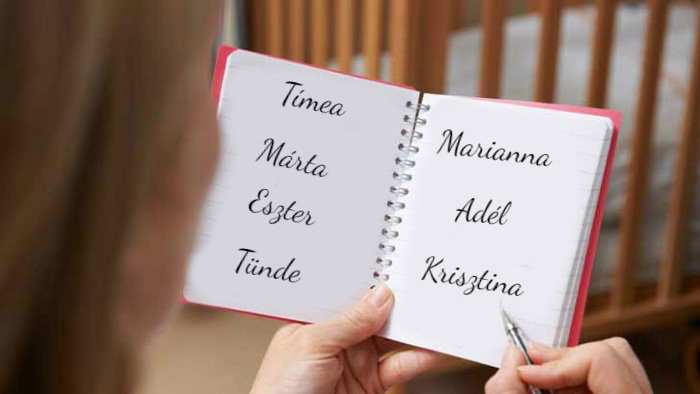 Tímea
Márta
Eszter
Tünde
Marianna
Adél
Krisztina